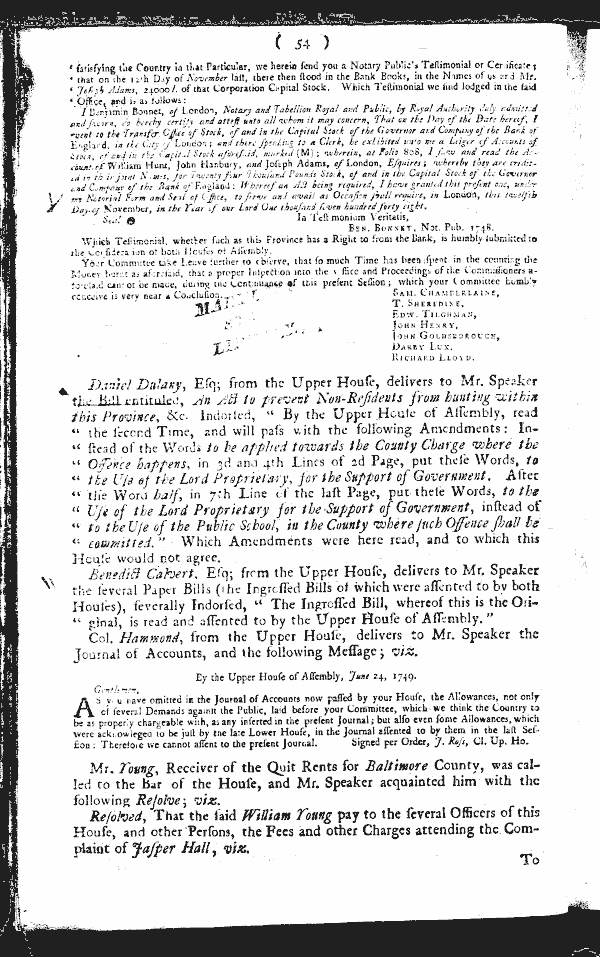 ( 54 )
‘ satisfying the Country in that Particular, we herein send you a Notary Public's Testimonial or Certificate;
‘ that on the 12th Day of November last, there then stood in the Bank Books, in the Names of us and Mr.
‘ Joseph Adams, 24000 l. of that Corporation Capital Stock. Which Testimonial we find lodged in the said
‘ Office, and is as follows:
I Benjamin Bonnet, of London, Notary and Tabellion Royal and Public, by Royal Authority duly admitted
and sworn, do hereby certify and attest unto all whom it may concern, That on the Day of the Date hereof, I
went to the Transfer Office of Stock, of and in the Capital Stock of the Governor and Company of the Bank of
England, in the City of London; and there speaking to a Clerk, he exhibited unto me a Leiger of Accounts of
Stock, of and in the Capital Stock aforesaid, marked (M); wherein, at Folio 808, I saw and read the Ac-
count of William Hunt, John Hanbury, and Joseph Adams, of London, Esquires; whereby they are credit-
ed in their joint Names, for Twenty four Thousand Pounds Stock, of and in the Capital Stock of the Governor
and Company of the Bank of England: Whereof an Act being required, I have granted this present one, under
my Notorial Form and Seal of Office, to serve and avail as Occasion shall require, in London, this twelfth
Day of November, in the Year of our Lord One thousand seven hundred forty eight.
Seal In Testimonium Veritatis,
BEN. BONNET, Not. Pub. 1748.
Which Testimonial, whether such as this Province has a Right to from the Bank, is humbly submitted to
the Consideration of both Houses of Assembly.
Your Committee take Leave further to observe, that so much Time has been spent in the counting the
Money burnt as aforesaid, that a proper Inspection into the Office and Proceedings of the Commissioners a-
foresaid cannot be made, during the Continuance of this present Session; which your Committee humbly
conceive is very near a Conclusion.
SAM. CHAMBERLAINE,
T. SHEREDINE,
EDW. TILGHMAN,
JOHN HENRY,
JOHN GOLDSBOROUGH,
DARBY LUX,
RICHARD LLOYD.
Daniel Dulany, Esq; from the Upper House, delivers to Mr. Speaker
the Bill entituled, An Act to prevent Non-Residents from hunting within
this Province, &c. Indorsed, “ By the Upper House of Assembly, read
“ the second Time, and will pass with the following Amendments: In-
“ stead of the Words to be applied towards the County Charge where the
“ Offence happens, in 3d and 4th Lines of 2d Page, put these Words, to
“ the Use of the Lord Proprietary, for the Support of Government. After
“ the Word half, in 7th Line of the last Page, put these Words, to the
“ Use of the Lord Proprietary for the Support of Government, instead of
“ to the Use of the Public School, in the County where such Offence shall be
“ committed.” Which Amendments were here read, and to which this
House would not agree.
Benedict Calvert, Esq; from the Upper House, delivers to Mr. Speaker
the several Paper Bills (the Ingrossed Bills of which were assented to by both
Houses), severally Indorsed, “ The Ingrossed Bill, whereof this is the Ori-
“ ginal, is read and assented to by the Upper House of Assembly.”
Col. Hammond, from the Upper House, delivers to Mr. Speaker the
Journal of Accounts, and the following Message; viz.
By the Upper House of Assembly, June 24, 1749.
Gentlemen,
AS you have omitted in the Journal of Accounts now passed by your House, the Allowances, not only
of several Demands against the Public, laid before your Committee, which we think the Country to
be as properly chargeable with, as any inserted in the present Journal; but also even some Allowances, which
were acknowleged to be just by the late Lower House, in the Journal assented to by them in the last Ses-
sion: Therefore we cannot assent to the present Journal. Signed per Order, J. Ross, Cl. Up. Ho.
Mr. Young, Receiver of the Quit Rents for Baltimore County, was cal-
led to the Bar of the House, and Mr. Speaker acquainted him with the
following Resolve; viz.
Resolved, That the said William Young pay to the several Officers of this
House, and other Persons, the Fees and other Charges attending the Com-
plaint of Jasper Hall, viz.
To